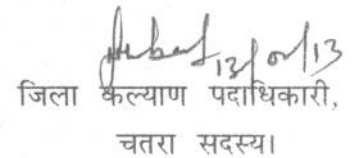 13/01/13
जिला कल्याण पदाधिकारी,
चतरा सदस्य।